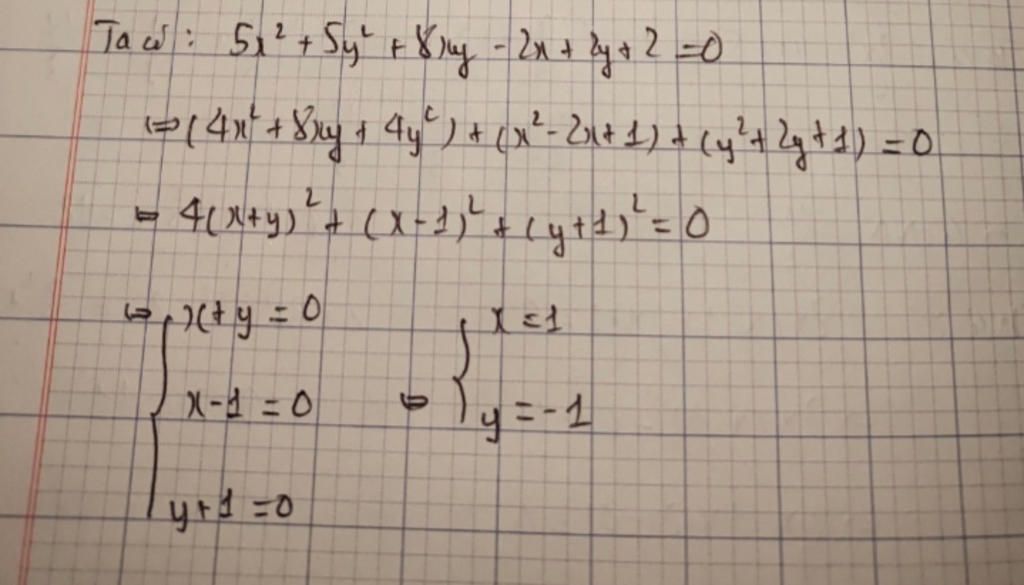 Ta có: 5x² + 5y² + 8xy - 2x + 2y + 2 = 0
⇔ (4x² + 8xy + 4y²) + (x² - 2x + 1) + (y² + 2y + 1) = 0
⇔ 4(x+y)² + (x-1)² + (y+1)² = 0
⇔ { x + y = 0
x - 1 = 0
y + 1 = 0
⇔ { x = 1
y = -1